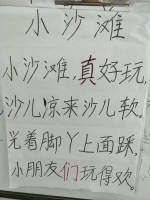 小沙滩
小沙滩,真好玩,
沙儿凉来沙儿软,
光着脚丫上面踩,
小朋友们玩得欢。